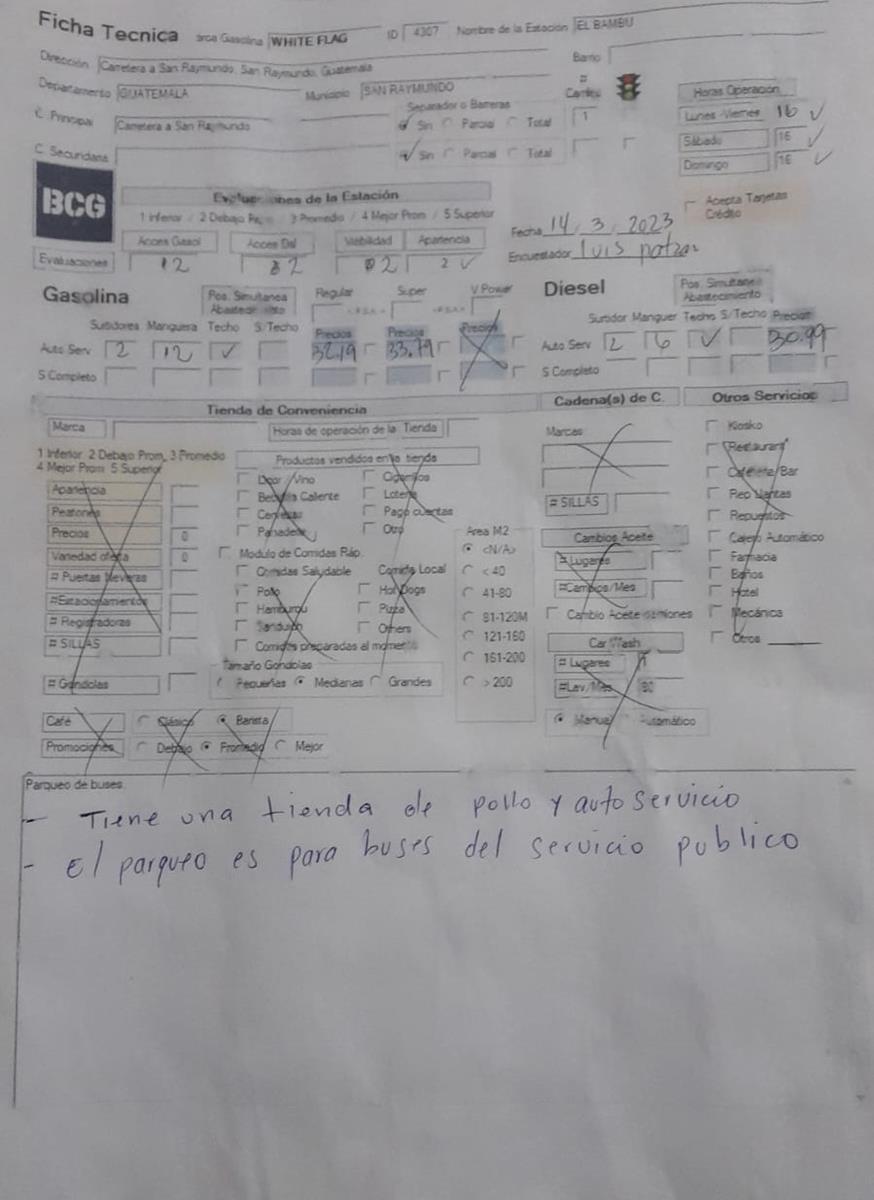 Ficha Tecnica arca Gasolina WHITE FLAG ID 4307 Nombre de la Estación EL BAMBU
Dirección Carretera a San Raymundo, San Raymundo, Guatemala Barrio
Departamento GUATEMALA Municipio SAN RAYMUNDO # Carriles Horas Operación
C. Principal Carretera a San Raymundo Separador o Barreras Sin Parcial Total 1 Lunes-Viernes 16
Sábado 16
C. Secundaria Sin Parcial Total Domingo 16
BCG Evaluaciones de la Estación Acepta Tarjetas Crédito
1 Inferior / 2 Debajo / 3 Promedio / 4 Mejor Prom / 5 Superior Fecha 14, 3, 2023
Acces Gasol Acces Dsl Visibilidad Apariencia Encuestador Luis
Evaluaciones 2 2 2 2
Gasolina Pos. Simultanea Abastecimiento Regular Super V Power Diesel Pos. Simultanea Abastecimiento
Surtidores Manguera Techo S/Techo Precios Precios Precios Surtidor Manguer Techo S/Techo Precios
Auto Serv 2 12 32.19 33.79 Auto Serv 2 6 30.99
S Completo S Completo
Tienda de Conveniencia Cadena(s) de C. Otros Servicios
Marca Horas de operación de la Tienda Marcas Kiosko
1 Inferior 2 Debajo Prom, 3 Promedio Productos vendidos en la tienda Restaurant
4 Mejor Prom 5 Superior Licor / Vino Cigarrillos Cafetería/Bar
Apariencia Bebida Caliente Loteria # SILLAS Rep Llantas
Peatones Cervezas Pago cuentas Repuestos
Precios 0 Panaderia Otro Area M2 Cambios Aceite Cajero Automático
Variedad oferta 0 Modulo de Comidas Ráp. <N/A> # Lugares Farmacia
# Puertas Neveras Comidas Saludable Comida Local < 40 Baños
#Estacionamientos Pollo Hot Dogs 41-80 #Cambios/Mes Hotel
# Registradoras Hamburgu Pizza 81-120M Cambio Aceite camiones Mecánica
# SILLAS Sanduich Others 121-160 Car Wash Otros
Comidas preparadas al momento 161-200 # Lugares 1
# Gondolas Tamaño Gondolas Pequeñas Medianas Grandes > 200 #Lav/Mes 90
Café Clásico Barista Manual Automático
Promociones Debajo Promedio Mejor
Parqueo de buses
- Tiene una tienda de pollo y auto servicio
- El parqueo es para buses del servicio publico